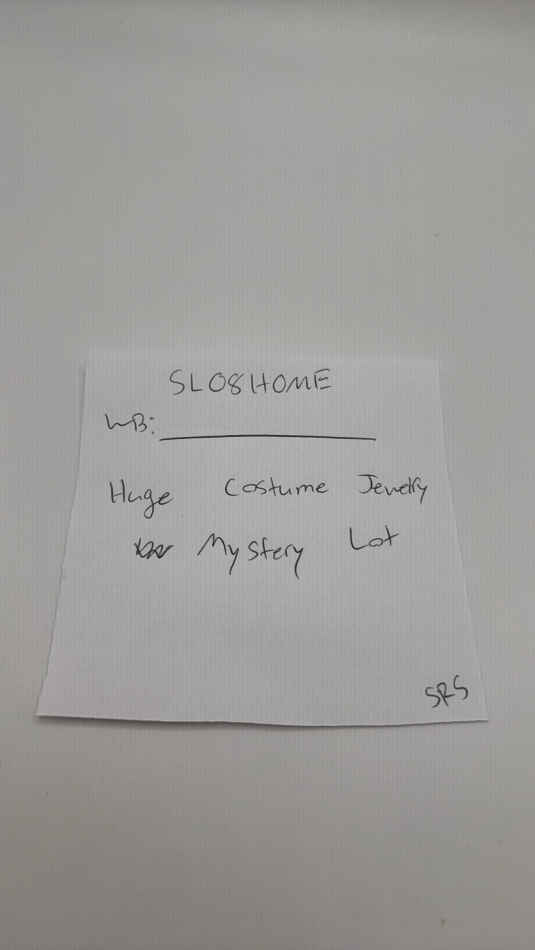 SLO8HOME
WB:
Huge Costume Jewelry
Mystery Lot
SRS